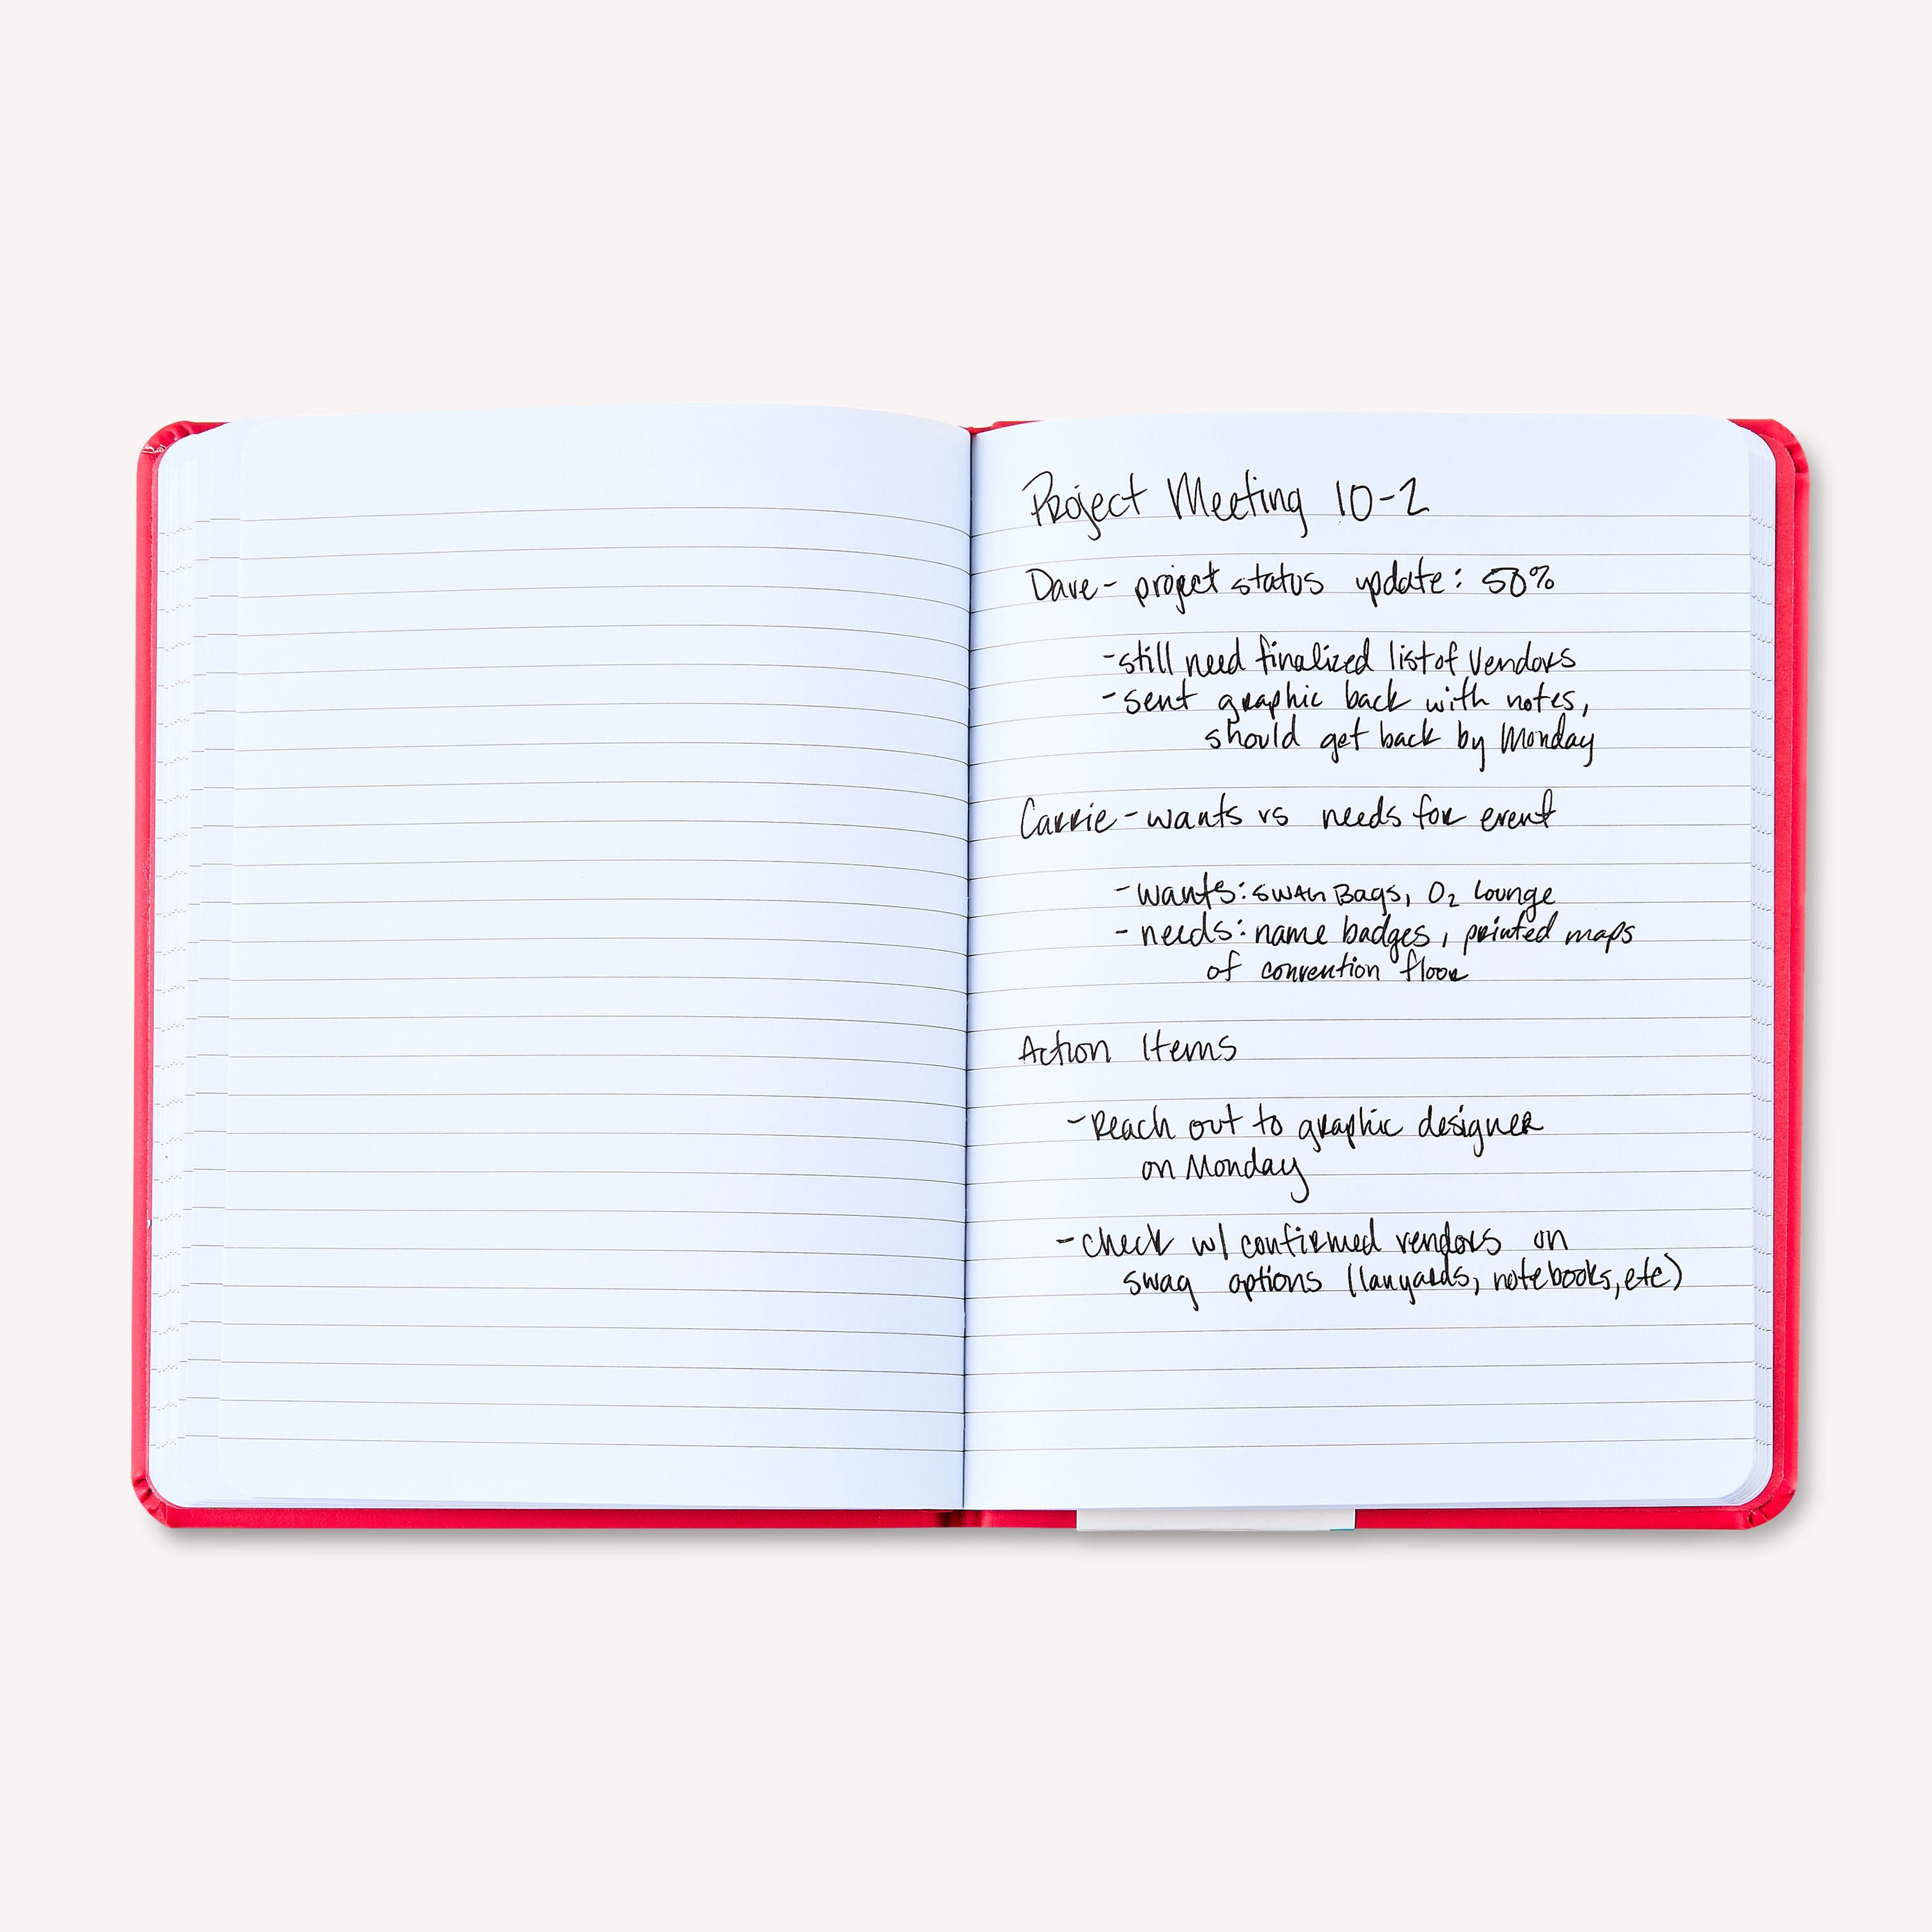 Project Meeting 10-2
Dave - project status update: 50%
- still need finalized list of vendors
- sent graphic back with notes,
should get back by Monday
Carrie - wants vs needs for event
- wants: SWAG Bags, O₂ Lounge
- needs: name badges, printed maps
of convention floor
Action Items
- Reach out to graphic designer
on Monday
- check w/ confirmed vendors on
swag options (lanyards, notebooks, etc)